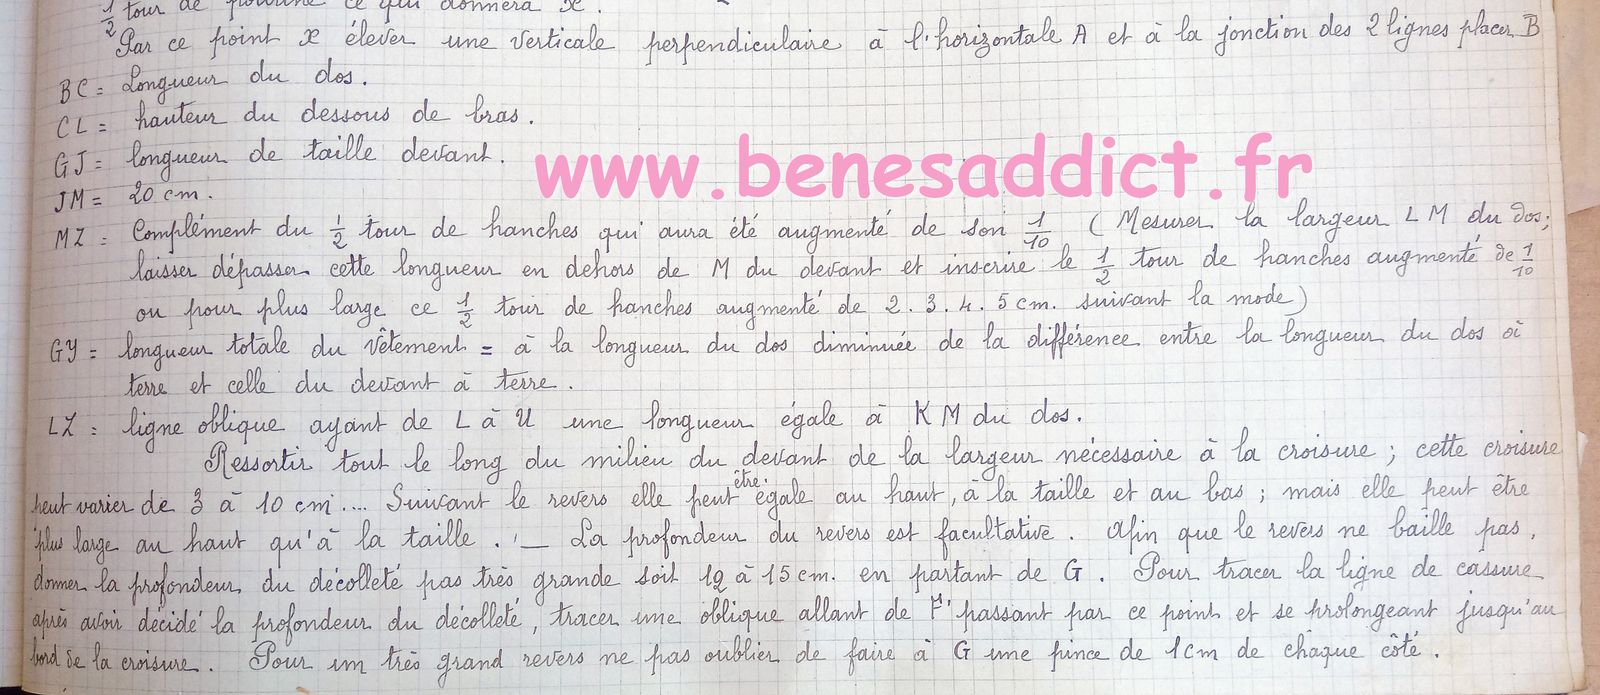 1/2 tour de poitrine ce qui donnera x.
Par ce point x élever une verticale perpendiculaire à l'horizontale A et à la jonction des 2 lignes placer B
BC = Longueur du dos.
CL = hauteur du dessous de bras.
GJ = longueur de taille devant.
www.benesaddict.fr
JM = 20 cm.
MZ = Complément du 1/2 tour de hanches qui aura été augmenté de son 1/10 (Mesurer la largeur LM du dos;
laisser dépasser cette longueur en dehors de M du devant et inscrire le 1/2 tour de hanches augmenté de 1/10
ou pour plus large ce 1/2 tour de hanches augmenté de 2.3.4.5 cm. suivant la mode)
GY = longueur totale du vêtement = à la longueur du dos diminuée de la différence entre la longueur du dos à
terre et celle du devant à terre.
LZ = ligne oblique ayant de L à U une longueur égale à KM du dos.
Ressortir tout le long du milieu du devant de la largeur nécessaire à la croisure; cette croisure
peut varier de 3 à 10 cm.... Suivant le revers elle peut être égale au haut, à la taille et au bas; mais elle peut être
plus large au haut qu'à la taille. — La profondeur du revers est facultative. Afin que le revers ne baille pas,
donner la profondeur du décolleté pas très grande soit 12 à 15 cm. en partant de G. Pour tracer la ligne de cassure
après avoir décidé la profondeur du décolleté, tracer une oblique allant de F' passant par ce point et se prolongeant jusqu'au
bord de la croisure. Pour un très grand revers ne pas oublier de faire à G une pince de 1 cm de chaque côté.